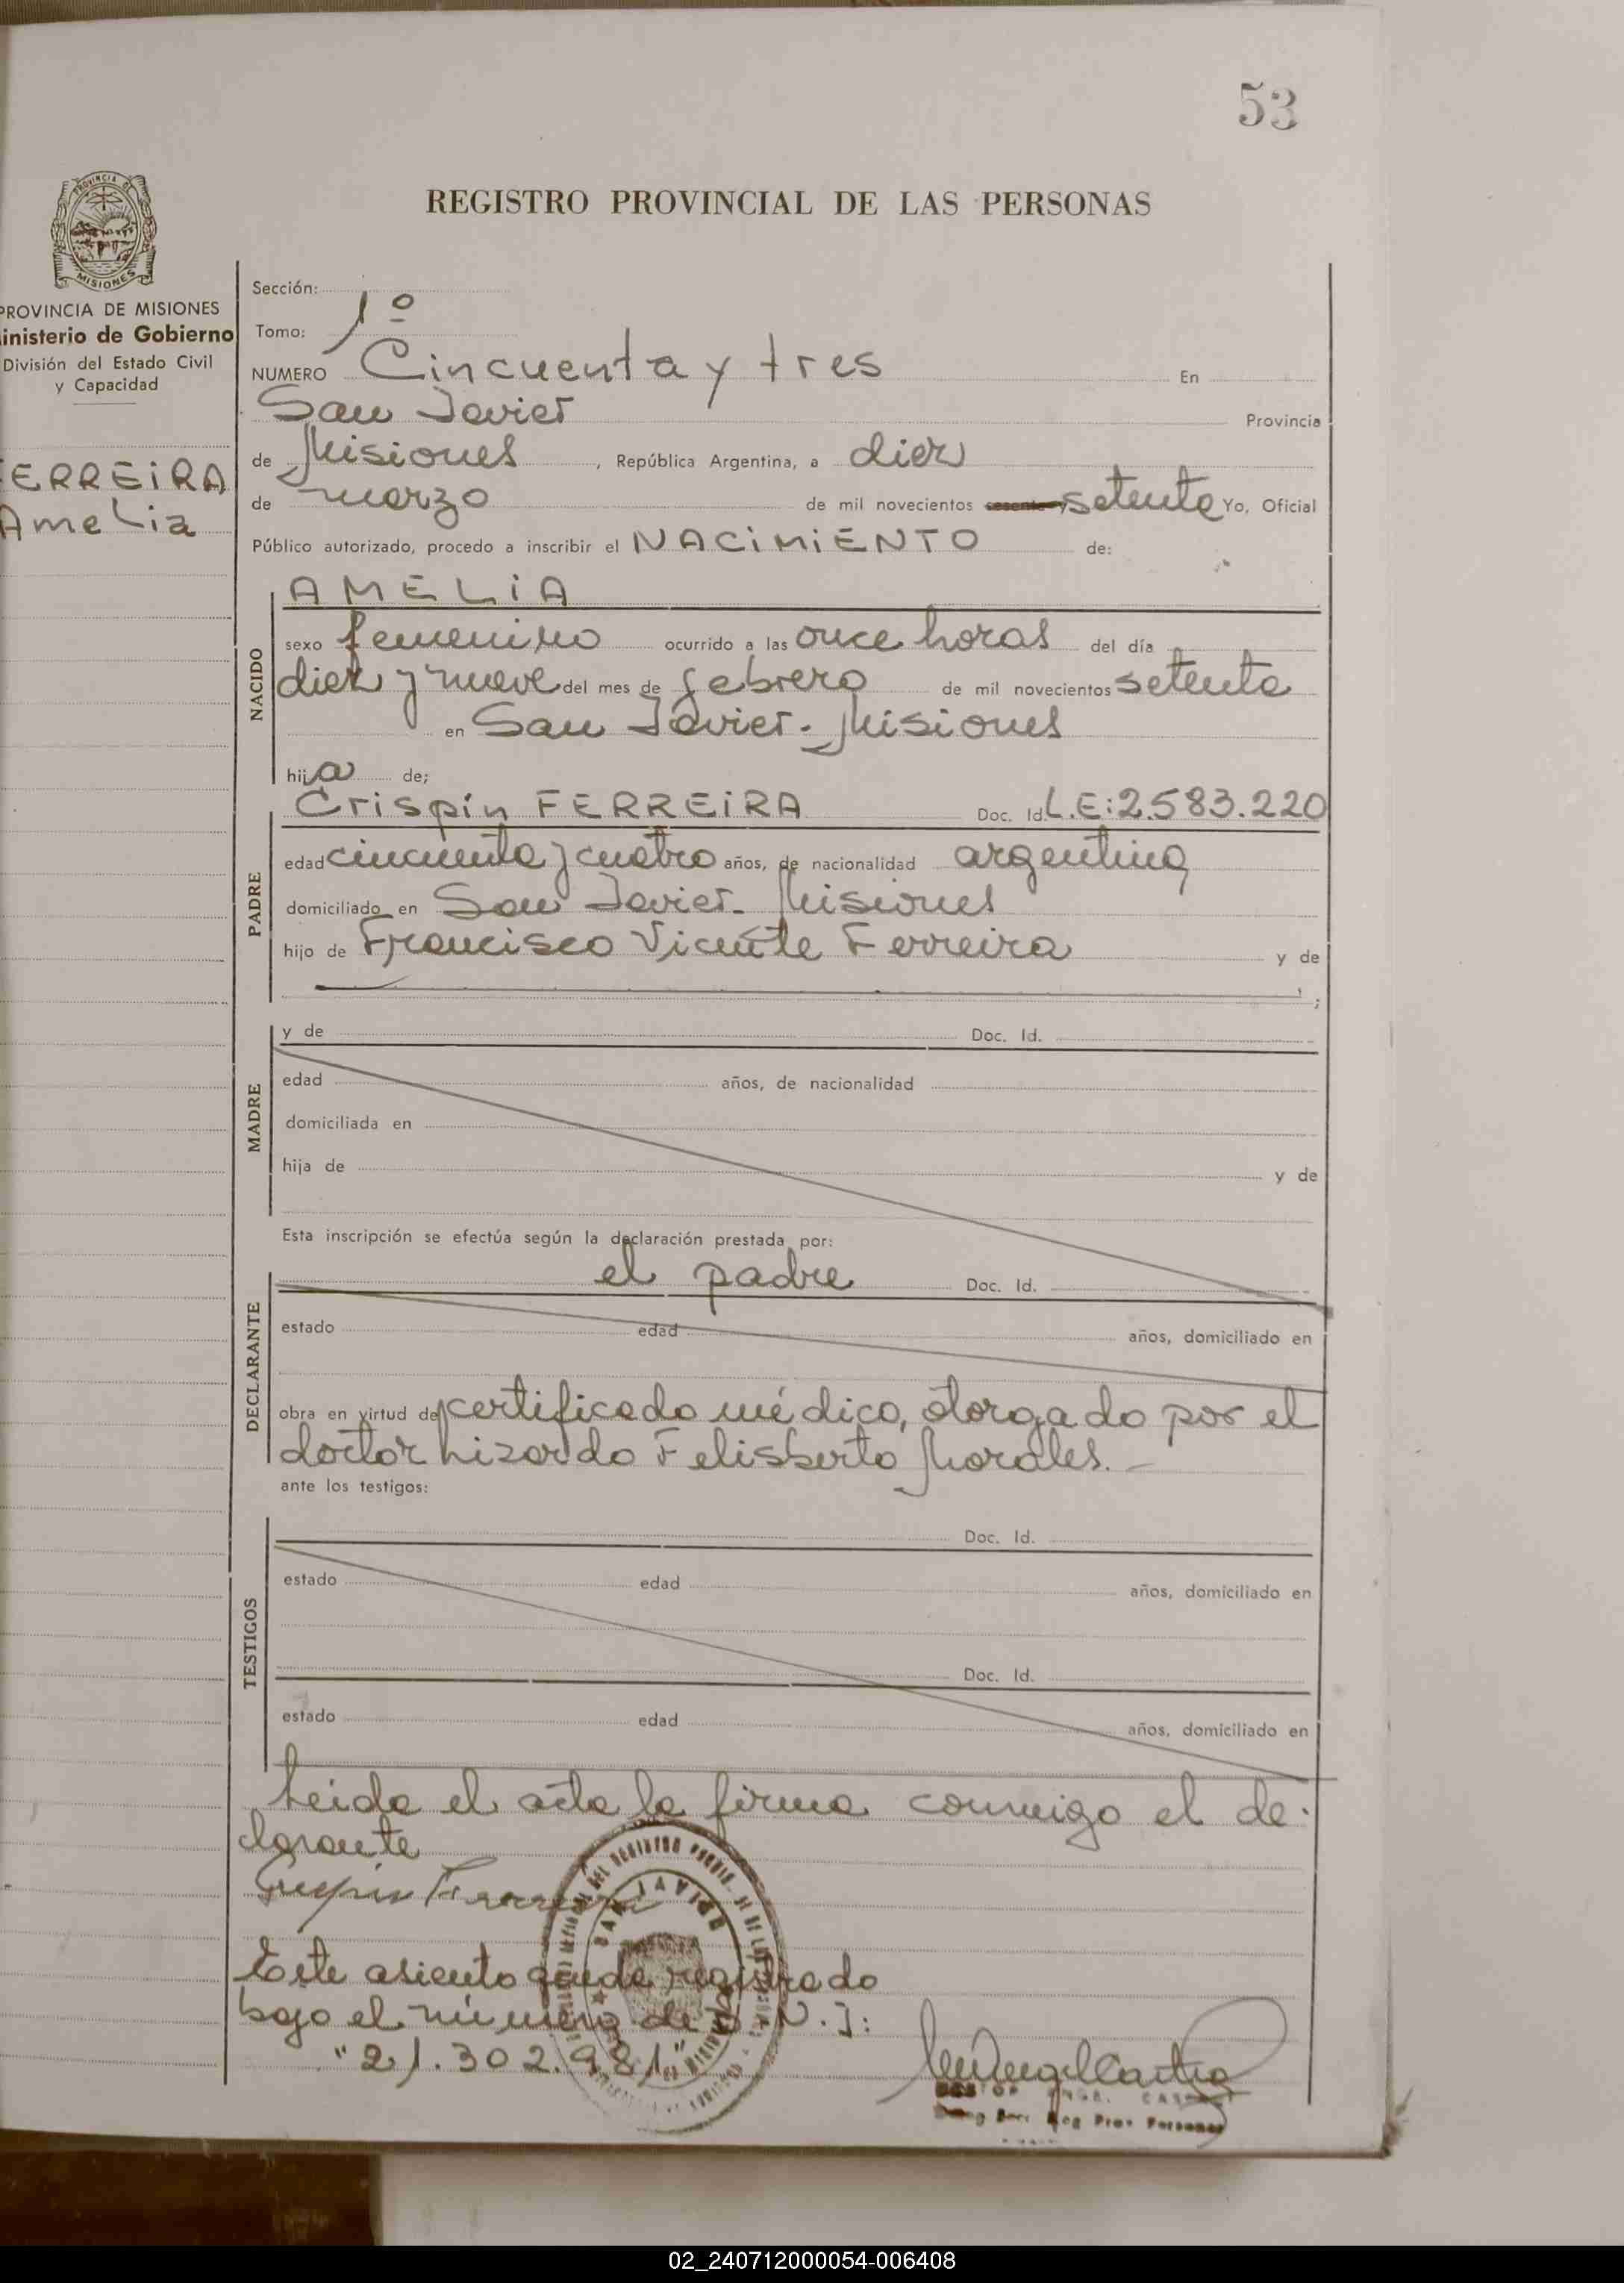 53
REGISTRO PROVINCIAL DE LAS PERSONAS
PROVINCIA DE
MISIONES
PROVINCIA DE MISIONES
inisterio de Gobierno
División del Estado Civil
y Capacidad
ERREIRA
Amelia
Sección:
Tomo: 1º
NUMERO Cincuenta y tres En
San Javier Provincia
de Misiones, República Argentina, a diez
de marzo de mil novecientos sesenta setenta Yo, Oficial
Público autorizado, procedo a inscribir el NACIMIENTO de:
NACIDO
AMELIA
sexo femenino ocurrido a las once horas del día
diez y nueve del mes de febrero de mil novecientos setenta
en San Javier. Misiones
hija de;
PADRE
Crispín FERREIRA Doc. Id. L.E:2.583.220
edad cincuenta y cuatro años, de nacionalidad argentina
domiciliado en San Javier. Misiones
hijo de Francisco Vicente Ferreira y de
;
MADRE
y de Doc. Id.
edad años, de nacionalidad
domiciliada en
hija de y de
Esta inscripción se efectúa según la declaración prestada por:
DECLARANTE
el padre Doc. Id.
estado edad años, domiciliado en
obra en virtud de certificado médico, otorgado por el
doctor Lizardo Felisberto Morales.-
ante los testigos:
TESTIGOS
Doc. Id.
estado edad años, domiciliado en
Doc. Id.
estado edad años, domiciliado en
Leída el acta la firma conmigo el de-
clarante
Crispin Ferreira
SAN JAVIER
Este asiento queda registrado
bajo el número de D.N.I:
"21.302.981"
Reg Prov Personas
02_240712000054-006408